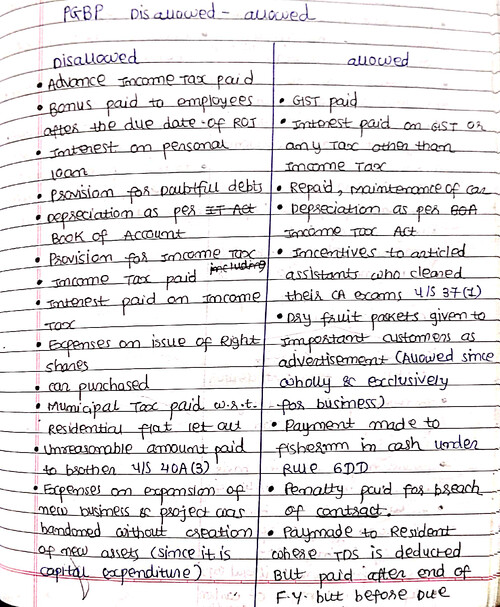 PGBP Disallowed - allowed
Disallowed
• Advance Income Tax paid
• Bonus paid to employees
after the due date of ROI
• Interest on personal
loan
• Provision for Doubtful debts
• Depreciation as per IT Act
Book of Account
• Provision for Income Tax
• Income Tax paid including
• Interest paid on Income
Tax
• Expenses on issue of Right
shares
• car purchased
• Municipal Tax paid w.r.t.
Residential flat let out
• Unreasonable amount paid
to brother u/s 40A(3)
• Expenses on expansion of
new business & project was
bandoned without creation
of new assets (since it is
capital expenditure)
allowed
• GST paid
• Interest paid on GST or
any Tax other than
Income Tax
• Repaid, maintenance of car
• Depreciation as per BOA
Income Tax Act
• Incentives to articled
assistants who cleared
their CA exams u/s 37(1)
• Dry fruit packets given to
important customers as
advertisement (Allowed since
wholly & exclusively
for business)
• Payment made to
fisherman in cash under
Rule 6DD
• Penalty paid for breach
of contract.
• Paymade to Resident
where TDS is deducted
But paid after end of
F.Y. but before due